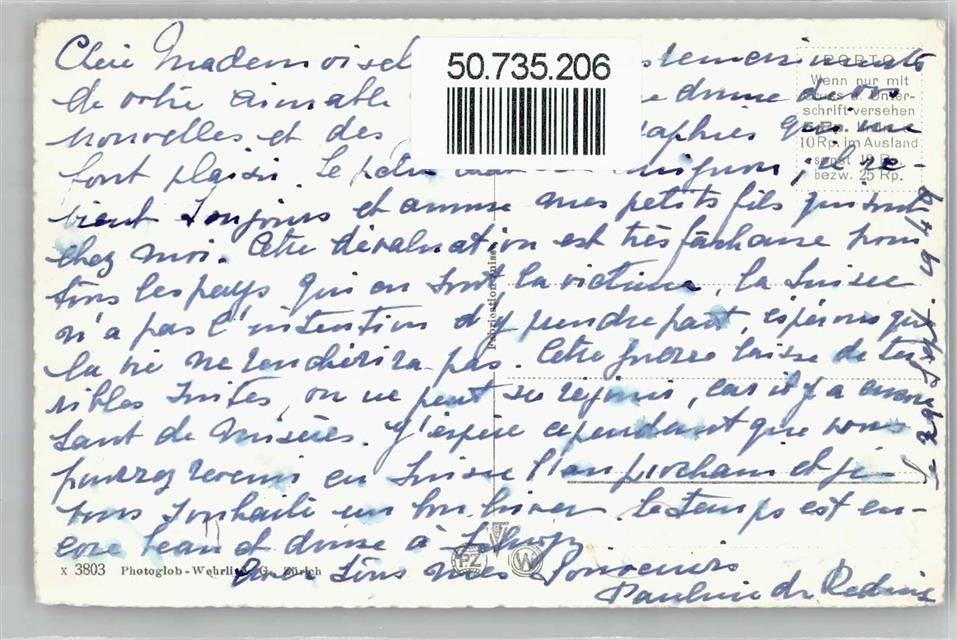 Chère Mademoisel
de votre aimable donne de vos
nouvelles et des graphies qui me
font plaisir. Le petit mignon, et re-
vient toujours et amuse mes petits fils qui sont
chez moi. Cette dévaluation est très fâcheuse pour
tous les pays qui en sont la victime, la Suisse
n'a pas l'intention d'y prendre part, espérons que
la vie ne renchérira pas. Cette guerre laisse de ter
ribles suites, on ne peut se réjouir, car il y a encore
tant de misères. J'espère cependant que vous
pourrez revenir en Suisse l'an prochain et je
vous souhaite un bon hiver. Le temps est en-
core beau et doux à Schwyz
tous mes Souvenirs
Pauline de Reding
29 Sept. 1949
50.735.206
PORTO
Wenn nur mit
Gruss u. Unter-
schrift versehen
10 Rp. im Ausland
sonst 10 Rp.
bezw. 25 Rp.
Fabrication Suisse
PZ W
X 3803 Photoglob-Wehrli A. G. Zürich